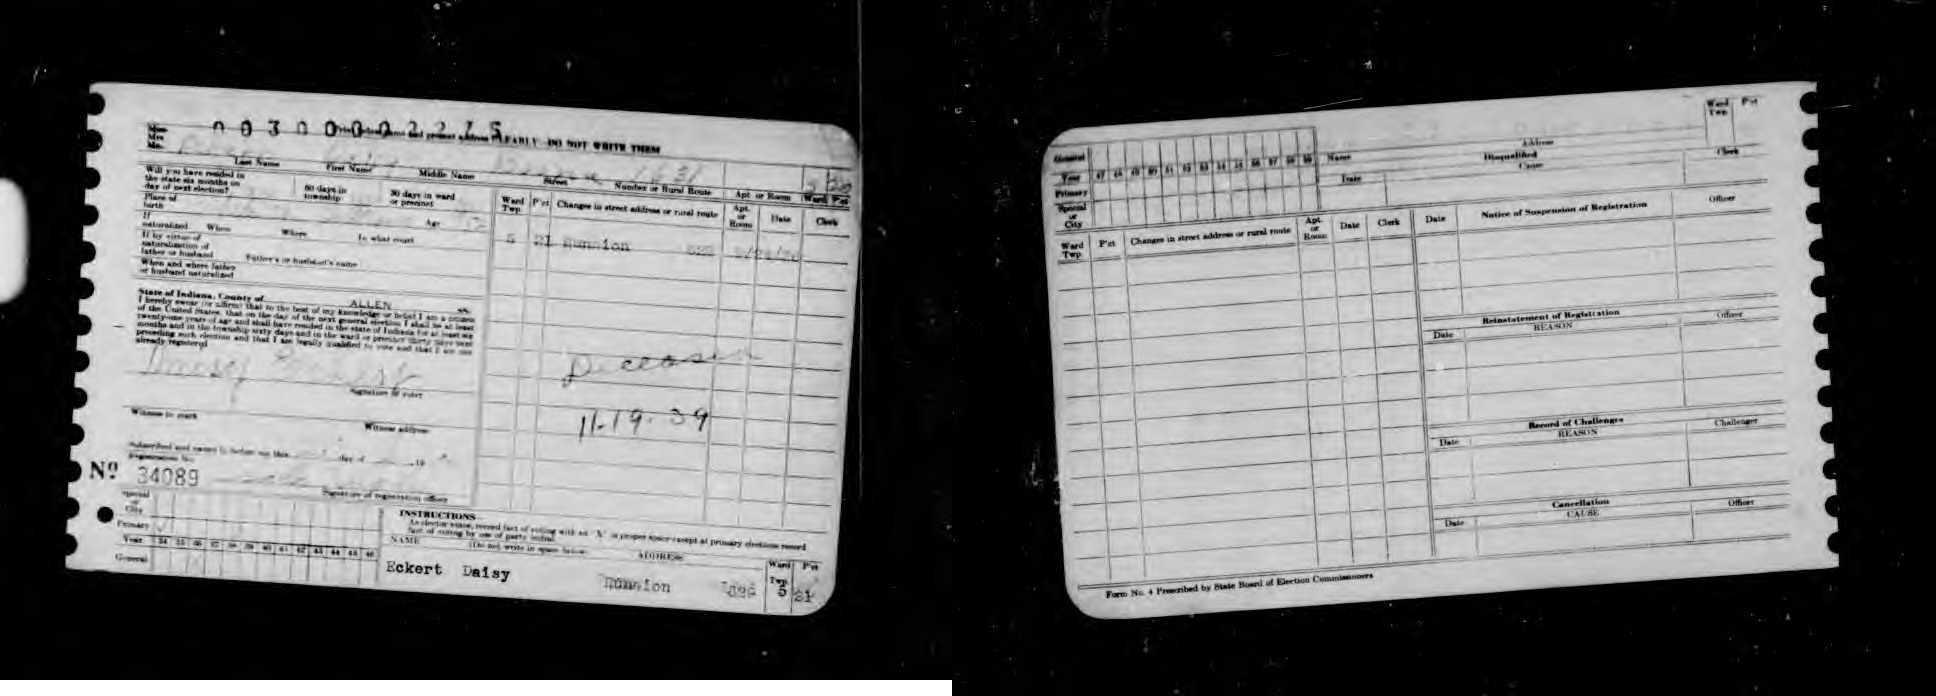 00300002275
Miss
Mrs
Mr. Print name and present address CLEARLY DO NOT WRITE THEM
Last Name First Name Middle Name Street Number or Rural Route Apt or Room Ward Pct
Will you have resided in
the state six months on
day of next election? 60 days in
township 30 days in ward
or precinct
Place of
birth Age
If
naturalized When Where In what court
If by virtue of
naturalization of
father or husband Father's or husband's name
When and where father
or husband naturalized
State of Indiana, County of ALLEN ss.
I hereby swear (or affirm) that to the best of my knowledge or belief I am a citizen
of the United States, that on the day of the next general election I shall be at least
twenty-one years of age and shall have resided in the state of Indiana for at least six
months and in the township sixty days and in the ward or precinct thirty days next
preceding such election and that I am legally qualified to vote and that I am not
already registered
Daisy Eckert
Signature of voter
Witness to mark Witness address
Subscribed and sworn to before me this day of 19
Registration No.
No 34089
Signature of registration officer
Ward
Twp P'ct Changes in street address or rural route Apt.
or
Room Date Clerk
5 21 Runnion
Deceased
11-19-39
Special
or
City
Primary
Year 34 35 36 37 38 39 40 41 42 43 44 45 46
General
INSTRUCTIONS
As elector votes, record fact of voting with an "X" in proper space except at primary elections record
fact of voting by use of party initial
NAME (Do not write in space below) ADDRESS Ward
Twp P'ct
Eckert Daisy Runnion 5 21
General
Year 47 48 49 50 51 52 53 54 55 56 57 58 59
Primary
Special
or
City
Name Address Ward
Twp P'ct
Disqualified
Date Cause Clerk
Ward
Twp P'ct Changes in street address or rural route Apt.
or
Room Date Clerk
Date Notice of Suspension of Registration Officer
Reinstatement of Registration
Date REASON Officer
Record of Challenges
Date REASON Challenger
Cancellation
Date CAUSE Officer
Form No. 4 Prescribed by State Board of Election Commissioners